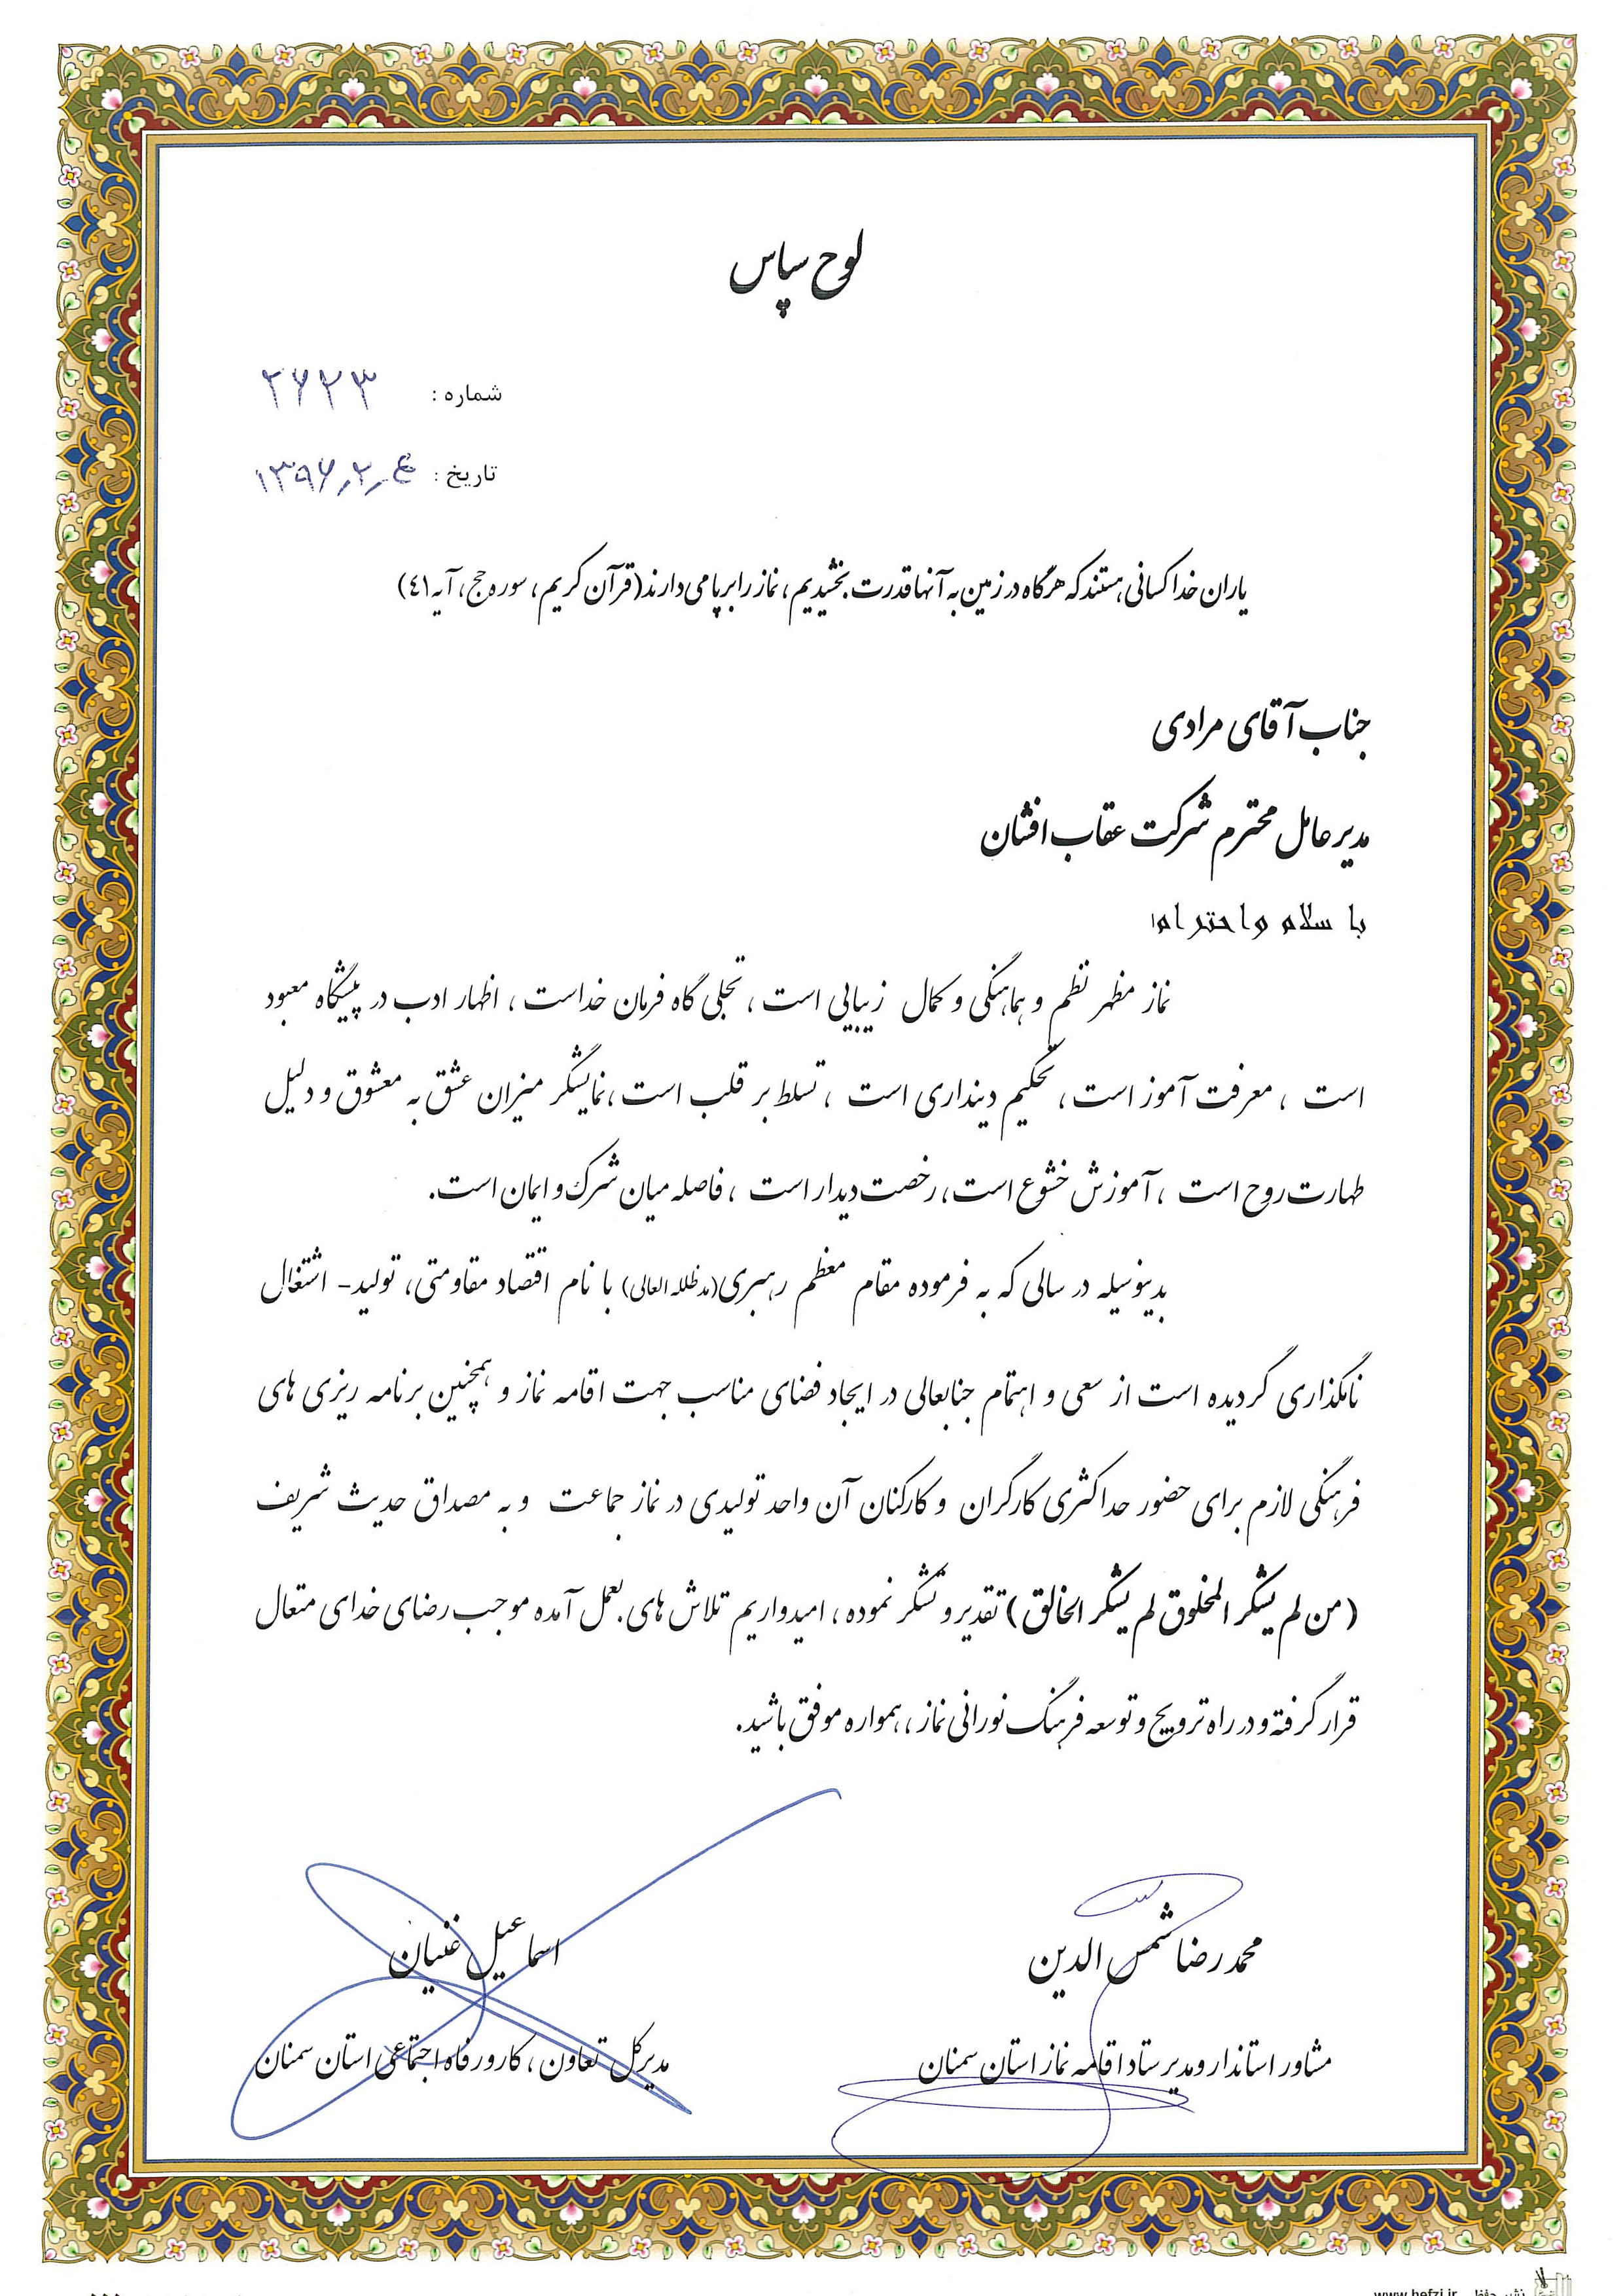 لوح سپاس
شماره : ۲۶۲۳
تاریخ : ۱۳۹۶٫۲٫۴
یاران خدا کسانی هستند که هرگاه در زمین به آنها قدرت بخشیدیم، نماز را برپا می دارند (قرآن کریم، سوره حج، آیه ٤١)
جناب آقای مرادی
مدیرعامل محترم شرکت عقاب افشان
با سلام و احترام؛
نماز مظهر نظم و هماهنگی و کمال زیبایی است ، تجلی گاه فرمان خداست ، اظهار ادب در پیشگاه معبود
است ، معرفت آموز است ، تحکیم دینداری است ، تسلط بر قلب است ،نمایشگر میزان عشق به معشوق و دلیل
طهارت روح است ، آموزش خشوع است، رخصت دیدار است ، فاصله میان شرک و ایمان است.
بدینوسیله در سالی که به فرموده مقام معظم رهبری(مدظله العالی) با نام اقتصاد مقاومتی، تولید- اشتغال
نامگذاری گردیده است از سعی و اهتمام جنابعالی در ایجاد فضای مناسب جهت اقامه نماز و همچنین برنامه ریزی های
فرهنگی لازم برای حضور حداکثری کارگران و کارکنان آن واحد تولیدی در نماز جماعت و به مصداق حدیث شریف
(من لم یشکر المخلوق لم یشکر الخالق) تقدیر و تشکر نموده ، امیدواریم تلاش های بعمل آمده موجب رضای خدای متعال
قرار گرفته و در راه ترویج و توسعه فرهنگ نورانی نماز ، همواره موفق باشید.
محمدرضا شمس الدین
مشاور استاندار و مدیر ستاد اقامه نماز استان سمنان
اسماعیل غنیان
مدیرکل تعاون ، کار و رفاه اجتماعی استان سمنان
نشر حفظی www.hefzi.ir